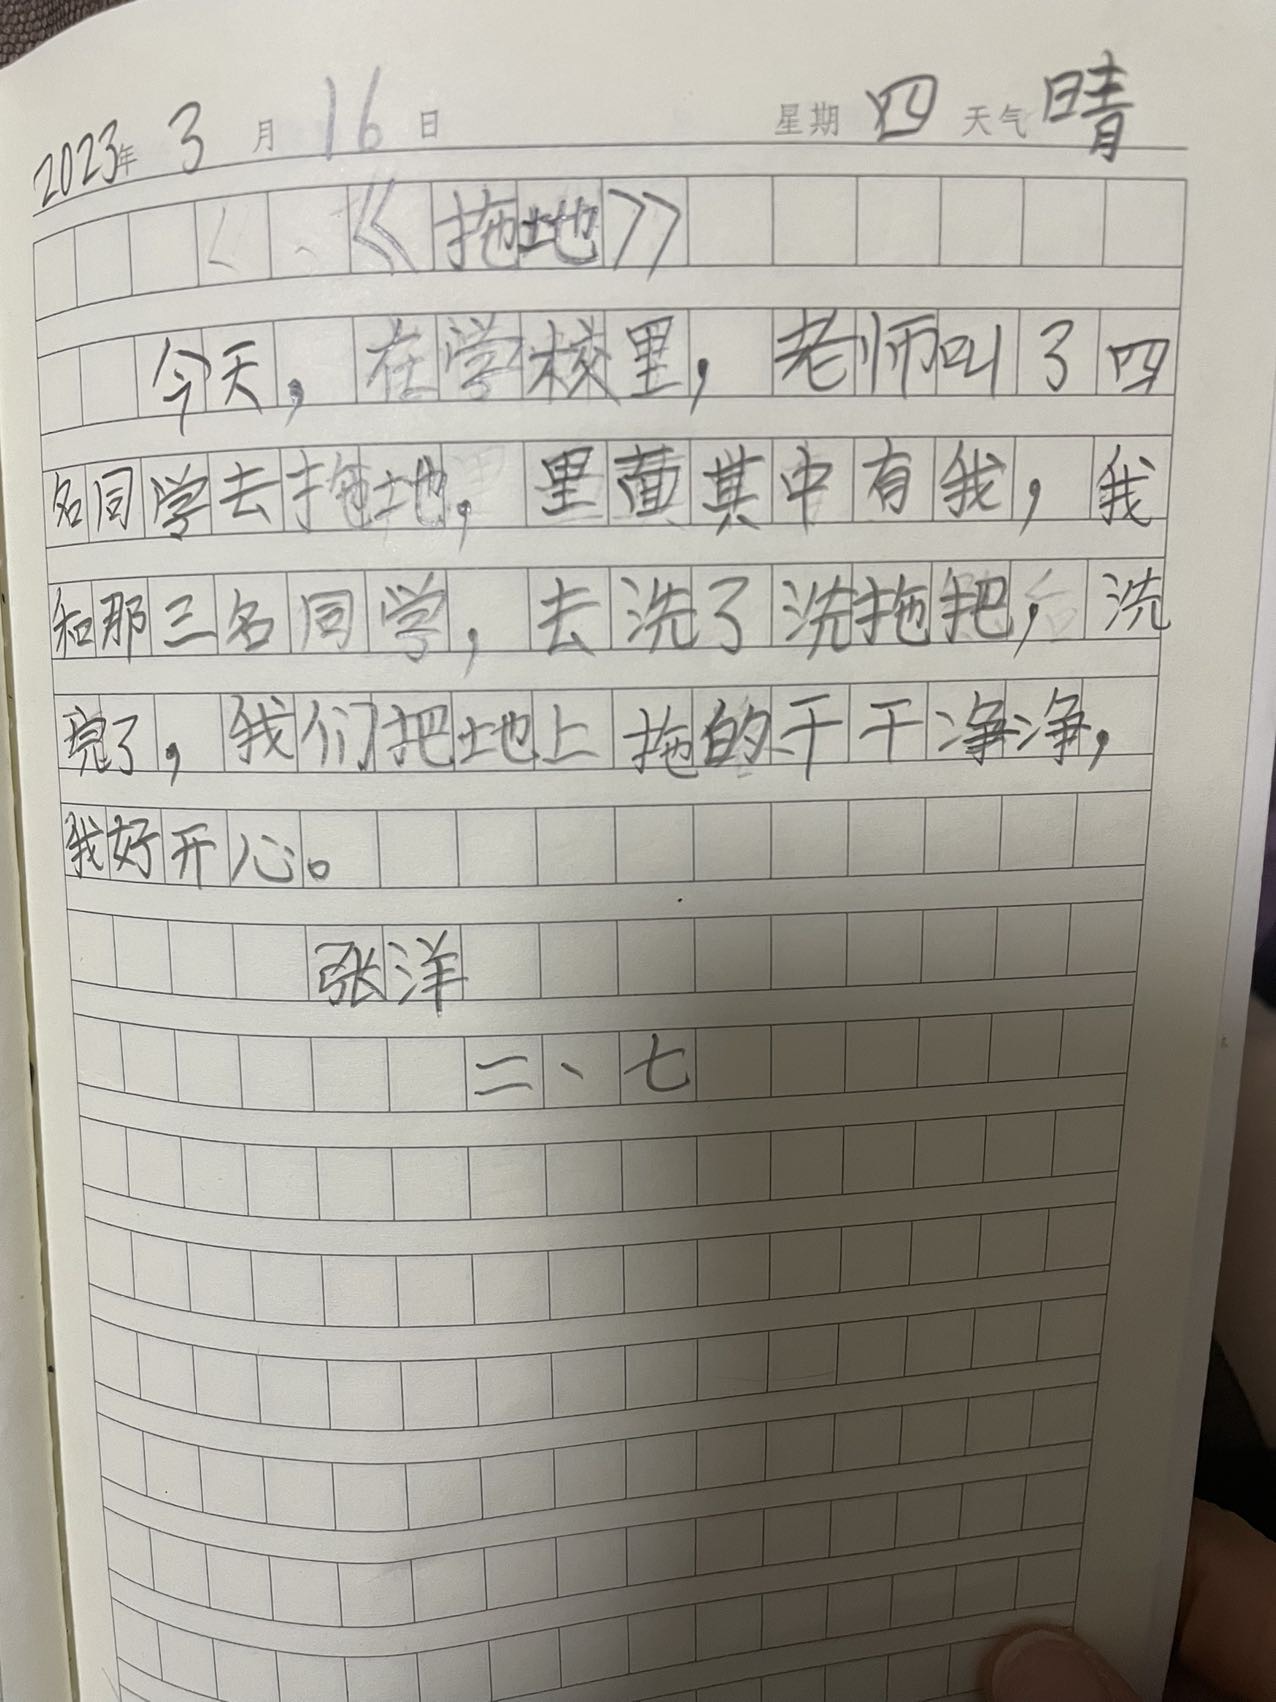 2023年 3 月 16 日 星期 四 天气 晴
《拖地》
今天，在学校里，老师叫了四
名同学去拖地，里面其中有我，我
和那三名同学，去洗了洗拖把，洗
完了，我们把地上拖的干干净净，
我好开心。
张洋
二、七